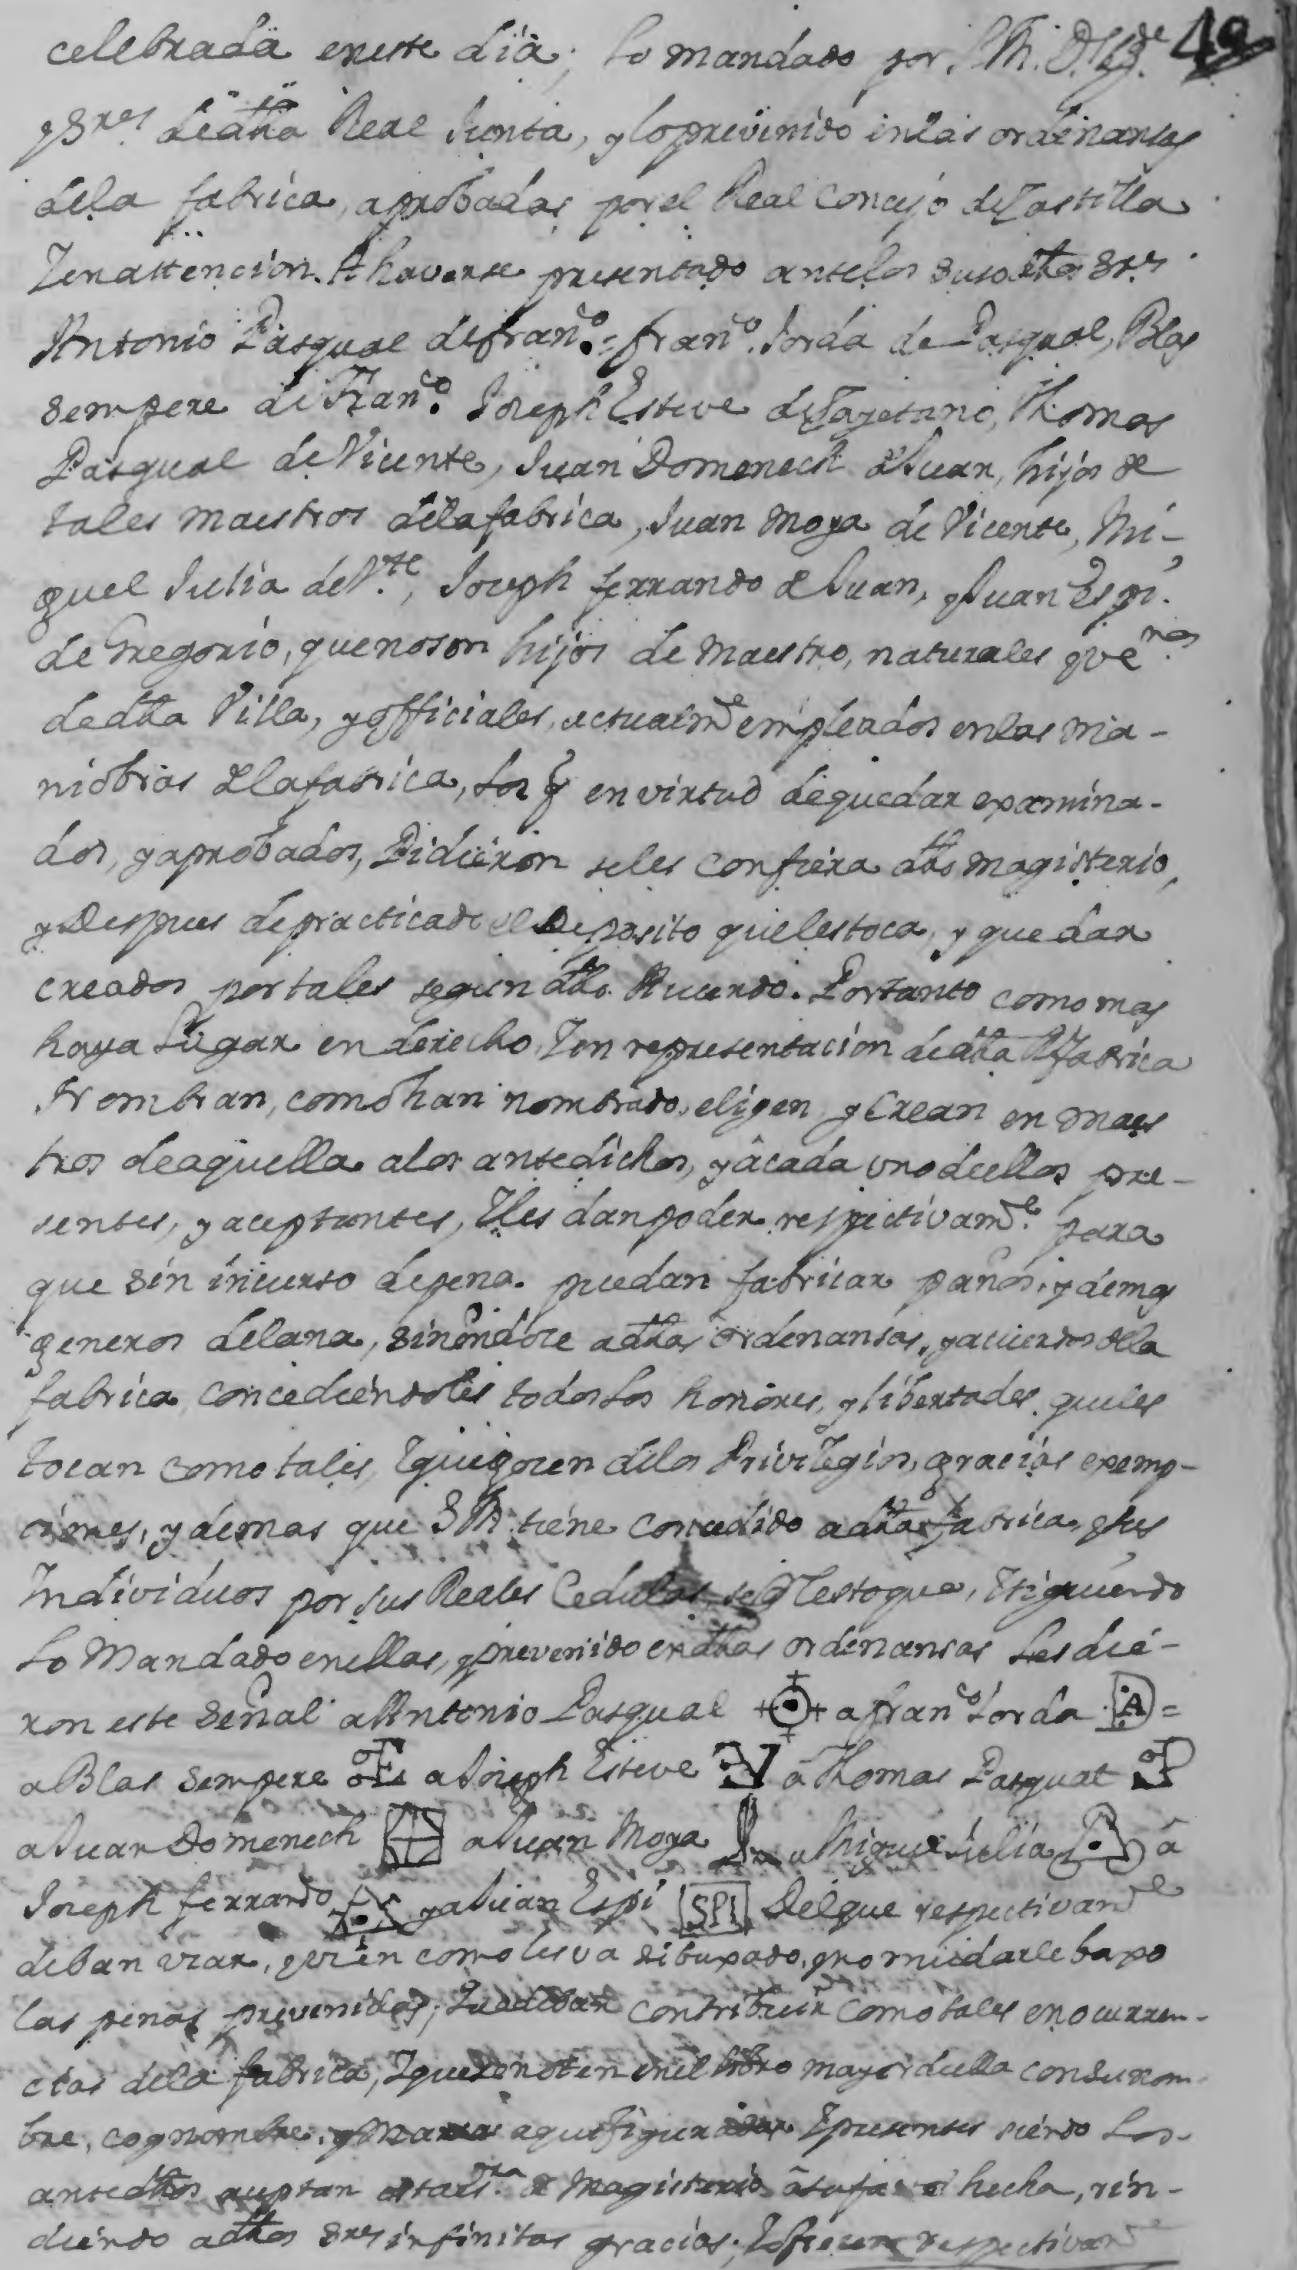 celebrada eneste dia; lo mandado por S. M. 49
y Sres. de dha Real Junta, y lo prevenido en las ordenansas
dela fabrica, aprobadas por el Real Concejo de Castilla
Y en attencion. A haverse presentado antelos susodhos Sres.
Antonio Pasqual de franco. = franco. Jorda de Pasqual, Blas
Sempere de Franco. Joseph Esteve de Cayetano, Thomas
Pasqual de Vicente, Juan Domenech de Juan, hijos de
tales maestros dela fabrica, Juan Moya de Vicente, Mi-
guel Julia de Vte., Joseph ferrando de Juan, y Juan Espi.
de Gregorio, que no son hijos de Maestro, naturales y venos
de dha Villa, y officiales, actualmte empleados en las ma-
niobras de la fabrica, Los q en virtud de quedar examina-
dos, y aprobados, Pidieron seles confiera dho magisterio,
y Despues de practicado el Deposito que les toca, y quedar
creados por tales segun dho Acuerdo. Por tanto como mas
haya Lugar en derecho, Y en representacion de dha Rl fabrica
Nombran, como han nombrado, eligen, y Crean en Maes
tros de aquella a los antedichos, y â cada uno de ellos pre-
sentes, y aceptantes, Y les dan poder respectivamte. para
que sin incurso de pena. puedan fabricar paños, y demas
generos de lana, siñendose a dhas ordenansas, y acuerdos de la
fabrica, concediendoles todos los honores, y libertades, que les
tocan como tales, Y que gozen de los Privilegios, gracias exemp-
ciones, y demas que S M. tiene concedido a dha fabrica, y sus
Individuos por sus Reales Cedulas, Y siguiendo
Lo Mandado en ellas, y prevenido en dhas ordenansas Les die-
ron este Señal a Antonio Pasqual a franco Jorda A =
a Blas Sempere a Joseph Esteve â Thomas Pasqual
a Juan Domenech a Juan Moya a Miguel Julia â
Joseph ferrando y a Juan Espi SPI Del que respectivamte
deban usar, y bien como les va dibuxado, y no mudarle baxo
las penas prevenidas; contribuir como tales en ocurren-
cias dela fabrica, Y que se noten en el libro mayor de ella con su nom-
bre, cognombre, y Marca aqui figurada Y presentes siendo Los-
antedhos aceptan de Magisterio â su favor hecha, rin-
diendo a dhos Sres infinitas gracias; respectivamte